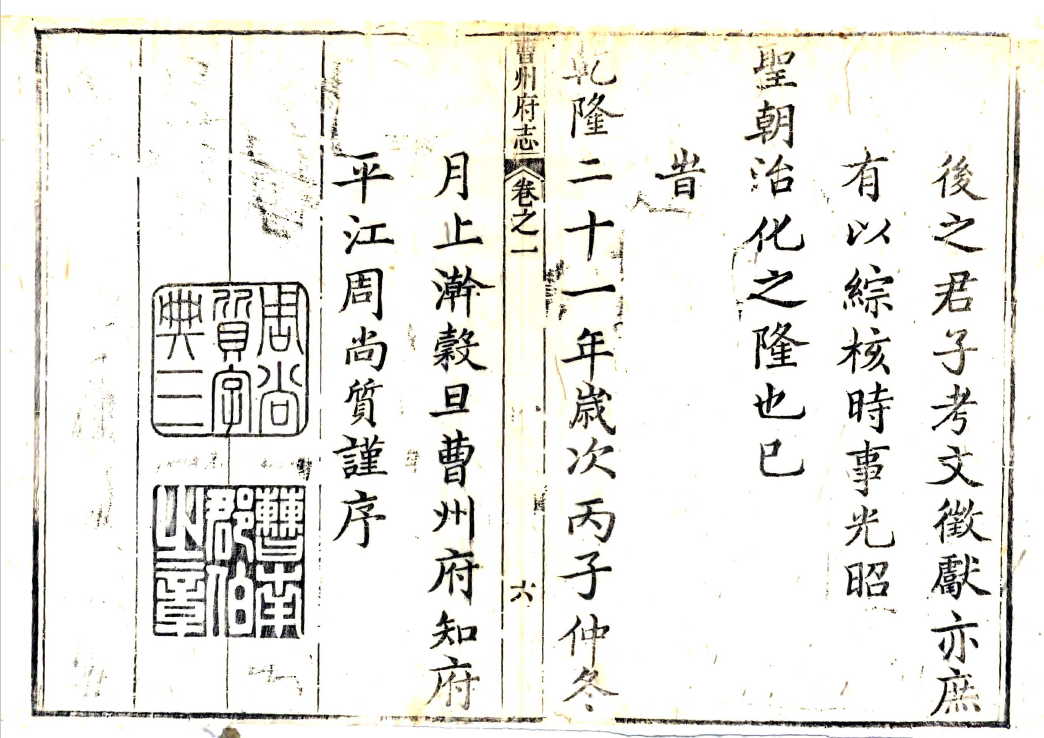 後之君子考文徵獻亦庶
有以綜核時事光昭
聖朝治化之隆也已
旹
乾隆二十一年歲次丙子仲冬
曹州府志 卷之一 六
月上澣穀旦曹州府知府
平江周尚質謹序
周尚
質字
典三
曹南
郡伯
之章